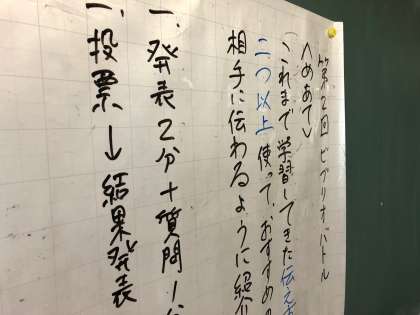 第2回 ビブリオバトル
〈めあて〉
これまで学習してきた伝え
二つ以上使って、おすすめの
相手に伝わるように紹介
一、発表2分+質問1分
一、投票→結果発表